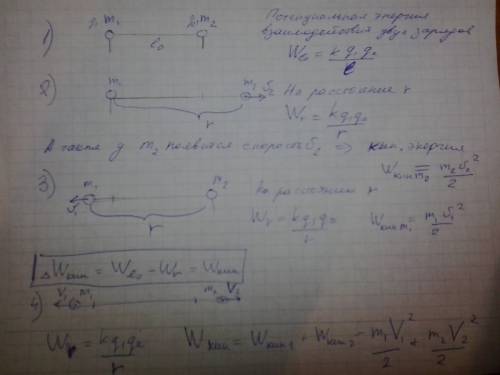 1) q₁ m₁ q₂ m₂
l₀
Потенциальная энергия
взаимодействия двух зарядов
Wₗ₀ = kq₁q₂/l
2) m₁ m₂ υ₂
r
На расстоянии r
Wᵣ = kq₁q₂/r
А также у m₂ появится скорость υ₂ ⇒ кин. энергия
Wкин m₂ = m₂υ₂²/2
3) m₁ m₂
υ₁
r
На расстоянии r
Wᵣ = kq₁q₂/r Wкин m₁ = m₁υ₁²/2
= Wₗ₀ − Wᵣ = Wкин
4) V₁ m₁ m₂ V₂
Wᵣ = kq₁q₂/r Wкин = Wкин₁ + Wкин₂ = m₁V₁²/2 + m₂V₂²/2